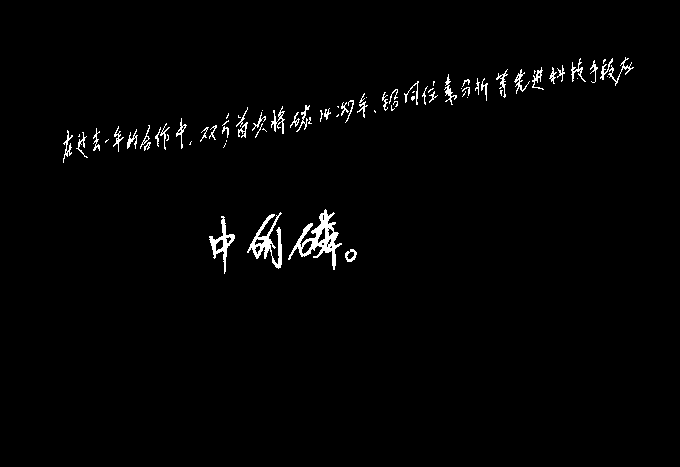 在过去一年的合作中,双方首次将碳14测年、铅同位素分析等先进科技手段应
中的磷。